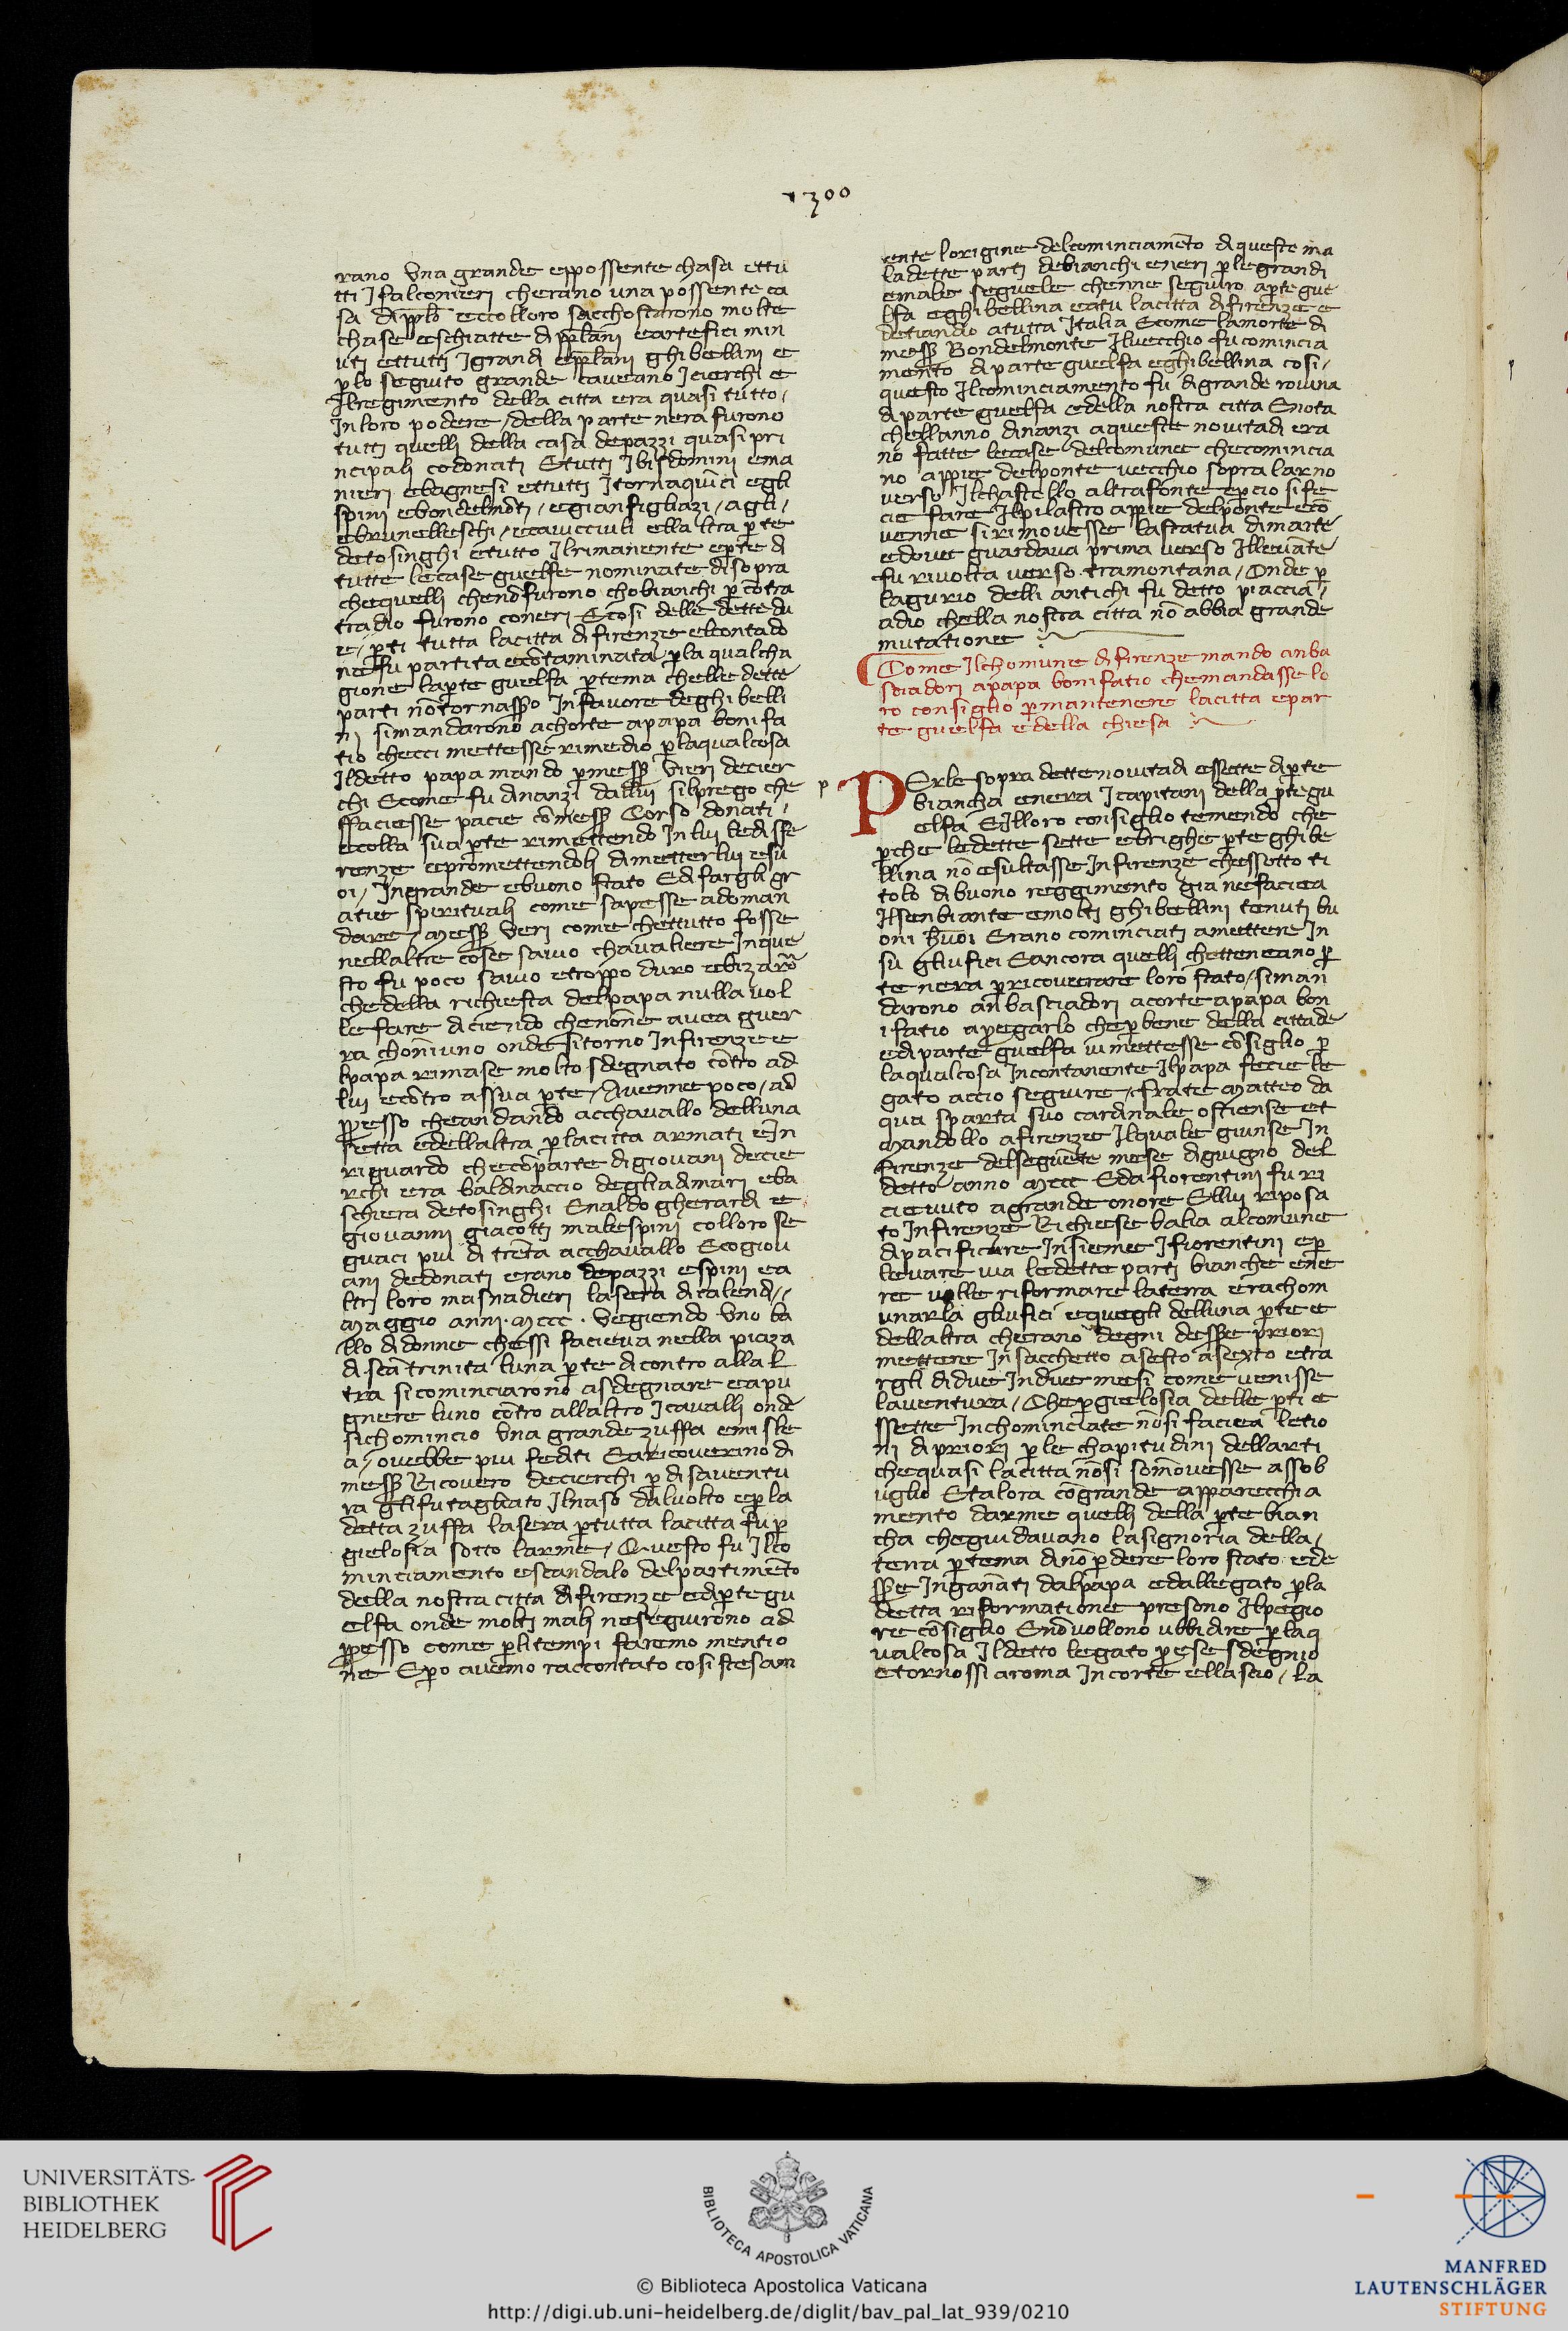 1300
rano Una grande eppossente chasa ettu
tti J falconieri cherano una possente ca
sa di pplo eccolloro sacchostarono molte
chase eschiatte di pplani eartefici min
uti ettutti J grandi epplani ghibellini e
plo seguito grande caveano J cierchi e
Ilregimento della citta era quasi tutto /
In loro podere / della parte nera furono
tutti quelli della casa depazzi quasi pri
ncipali codonati Etutti J bisdomini ema
nieri ebagnesi ettutti J tornaquinci egli
spini ebondelmōti / egianfigliazi / agli /
ebrunelleschi / ecavicciuli ella ltra pte
detosinghi etutto Ilrimanente epte di
tutte lecase guelfe nominate disopra
chequelli chenō furono chobianchi p cōtra
tradio furono coneri Ecosi delle dette du
e / pti tutta lacitta difirenze elcontado
nefu partita ecōtaminata pla qualcha
gione lapte guelfa ptema chelle dette
parti nōtornasso Infavore deghibelli
ni simandarono achorte apapa bonifa
tio checci mettesse rimedio plaqualcosa
Ildetto papa mando pmess Vieri decier
chi Ecome fu dinanzi dallui silprego che
ffaciesse pacie comess Corso donati /
ecolla sua pte rimettendo Inlui ledisfe
renze epromettendoli dimetterlui esu
oi / Ingrande ebuono stato Edi fargli gr
atie spirituali come sapesse adoman
dare / Mess Veri come chettutto fosse
nellaltre cose savio chavaliere Inque
sto fu poco savio etroppo duro ebizarō
chedella richiesta delpapa nulla vol
le fare diciendo chenonne avea guer
ra chonniuno onde sitorno Infirenze e
lpapa rimase molto sdegnato cōtro ad
lui ecōtro assua pte / Avenne poco / ad
ppresso cheandando acchavallo delluna
setta edellaltra placitta armati eIn
riguardo checōparte digiovani decie
rchi era baldinaccio degliadimari eba
schiera detosinghi Enaldo gherardi e
giovanni giacotti malespini colloro se
guaci piu di trēta acchavallo Ecogiov
ani dedonati erano depazzi espini ea
ltri loro masnadieri lasera dicalendi /
Maggio anni . Mccc . Vegiendo Uno ba
llo didonne chessi facieva nella piaza
di scā trinita luna pte dicontro allal
tra sicominciarono asdegnare eapu
gnere luno cōtro allaltro J cavalli onde
sichomincio Una grande zuffa emiscle
a / ovebbe piu fediti Earicoverino di
mess Ricovero decierchi p disaventu
ra glifu tagliato Ilnaso dalvolto epla
detta zuffa lasera ptutta lacitta fu p
gielosia sotto larme / Questo fu Ilco
minciamento escandalo delpartimēto
della nostra citta difirenze edipte gu
elfa onde molti mali neseguirono ad
ppresso come plitempi faremo mentio
ne Epo avemo raccontato cosi stesam
ente lorigine delcominciamēto diqueste ma
ladette parti debianchi eneri plegrandi
emale seguele chenne seguiro apte gue
lfa eghibellina eatu lacitta difirenze e
detiandio atutta Italia Ecome lamorte di
mess Bondelmonte Ilvecchio fu comincia
mento diparte guelfa eghibellina cosi /
questo Ilcominciamento fu digrande rovina
diparte guelfa edella nostra citta Enota
chellanno dinanzi aqueste novitadi era
no fatte lecase delcomune checomincia
no appie delponte vecchio sopra larno
verso Ilchastello altrafonte epcio sife
cie fare Ilpilastro appie delponte ecō
venne sirimovesse lastatua dimarte
edove guardava prima verso Illevāte
fu rivolta verso tramontana / Onde p
lagurio delli antichi fu detto piaccia /
adio chella nostra citta nō abbia grande
mutatione
Come Ilchomune di firenze mando anba
sciadori apapa bonifatio chemandasse lo
ro consiglio pmantenere lacitta epar
te guelfa edella chiesa
p
PErle sopra dette novitadi essette dipte
biancha enera J capitani della pte gu
elfa EIlloro consiglio temendo che
pche ledette sette ebrighe pte ghibe
llina nō esultasse Infirenze chessotto ti
tolo dibuono reggimento gia nefaciea
Ilsenbiante emolti ghibellini tenuti bu
oni huoi Erano cominciati amettere In
su gliufici Eancora quelli chetteneano p
te nera pricoverare loro stato / siman
darono anbasciadori acorte apapa bon
ifatio apregarlo chepbene della cittade
edi parte guelfa vi mettesse cōsiglio p
laqualcosa Incontanente Ilpapa fecie le
gato accio seguire / frate Matteo da
qua sparta suo cardinale ostiense et
Mandollo afirenze Ilquale giunse In
firenze delseguēte mese digugno del
detto anno Mccc Eda fiorentini fu ri
cieuto agrande onore Ellui riposa
to Infirenze Richiese balia alcomune
dipacificare Insieme J fiorentini ep
levare via ledette parti bianche ene
re volle riformare laterra erachom
unarla gliufici equegli delluna pte e
dellaltra cherano degni dessere priori
mettere Insacchetto asesto asexto etra
rgli didue Indue mesi come venisse
laventura / Che pgielosia delle pti e
ssette Inchominciate nōsi faciea letio
ni dipriori ple chapitudini dellarti
chequasi lacitta nōsi somovesse assob
uglio Etalora cōgrande apparecchia
mento darme quelli della pte bian
cha cheguidavano lasignoria della /
terra ptema dinō pdere loro stato ede
ssere Inganāti dalpapa edallegato pla
detta riformatione presono Ilpegio
re cōsiglio Enōvollono ubbidire plaq
ualcosa Ildetto legato prese sdegnio
etornossi aroma Incorte ellascio / la
UNIVERSITÄTS-
BIBLIOTHEK
HEIDELBERG
BIBLIOTECA APOSTOLICA VATICANA
© Biblioteca Apostolica Vaticana
http://digi.ub.uni-heidelberg.de/diglit/bav_pal_lat_939/0210
MANFRED
LAUTENSCHLÄGER
STIFTUNG